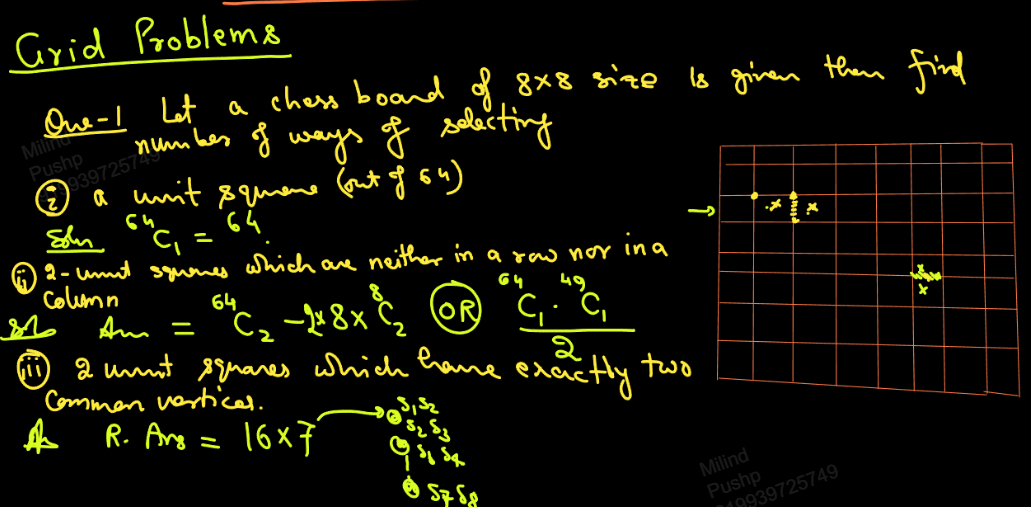 Grid Problems
Que-1 Let a chess board of 8×8 size is given then find
number of ways of selecting
(i) a unit square (out of 64)
Soln ⁶⁴C₁ = 64.
(ii) 2-unit squares which are neither in a row nor in a
column
Ans = ⁶⁴C₂ - 2×8×⁸C₂ OR ⁶⁴C₁·⁴⁹C₁ / 2
(iii) 2 unit squares which have exactly two
common vertices.
R. Ans = 16×7
S₁S₂
S₂S₃
S₇S₈
Milind
Pushp
9939725749
Milind
Pushp
919939725749